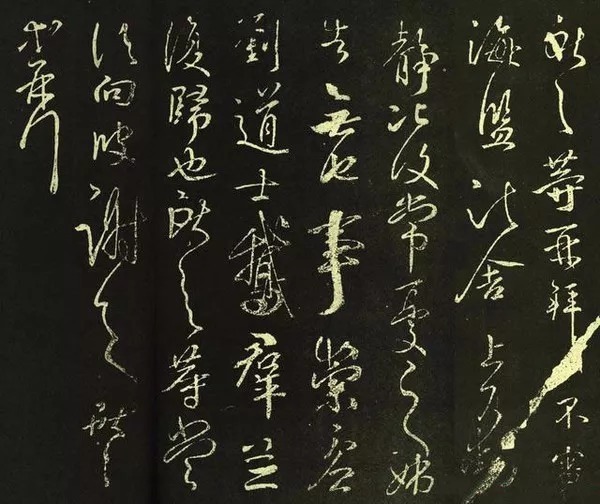 獻之等再拜不審
海鹽諸舍上下動
靜比復常憂之姊
告無他事崇虛
劉道士鵝群並
復歸也獻之等當
須向彼謝之獻之
等再拜